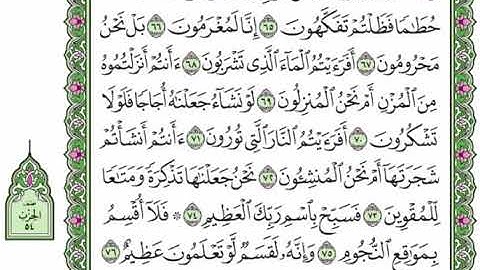 حُطَٰمًا فَظَلْتُمْ تَفَكَّهُونَ ٦٥ إِنَّا لَمُغْرَمُونَ ٦٦ بَلْ نَحْنُ
مَحْرُومُونَ ٦٧ أَفَرَءَيْتُمُ ٱلْمَآءَ ٱلَّذِى تَشْرَبُونَ ٦٨ ءَأَنتُمْ أَنزَلْتُمُوهُ
مِنَ ٱلْمُزْنِ أَمْ نَحْنُ ٱلْمُنزِلُونَ ٦٩ لَوْ نَشَآءُ جَعَلْنَٰهُ أُجَاجًا فَلَوْلَا
تَشْكُرُونَ ٧٠ أَفَرَءَيْتُمُ ٱلنَّارَ ٱلَّتِى تُورُونَ ٧١ ءَأَنتُمْ أَنشَأْتُمْ
شَجَرَتَهَآ أَمْ نَحْنُ ٱلْمُنشِـُٔونَ ٧٢ نَحْنُ جَعَلْنَٰهَا تَذْكِرَةً وَمَتَٰعًا
لِّلْمُقْوِينَ ٧٣ فَسَبِّحْ بِٱسْمِ رَبِّكَ ٱلْعَظِيمِ ٧٤ ۞ فَلَآ أُقْسِمُ
بِمَوَٰقِعِ ٱلنُّجُومِ ٧٥ وَإِنَّهُۥ لَقَسَمٌ لَّوْ تَعْلَمُونَ عَظِيمٌ ٧٦
نصف
الحزب
٥٤